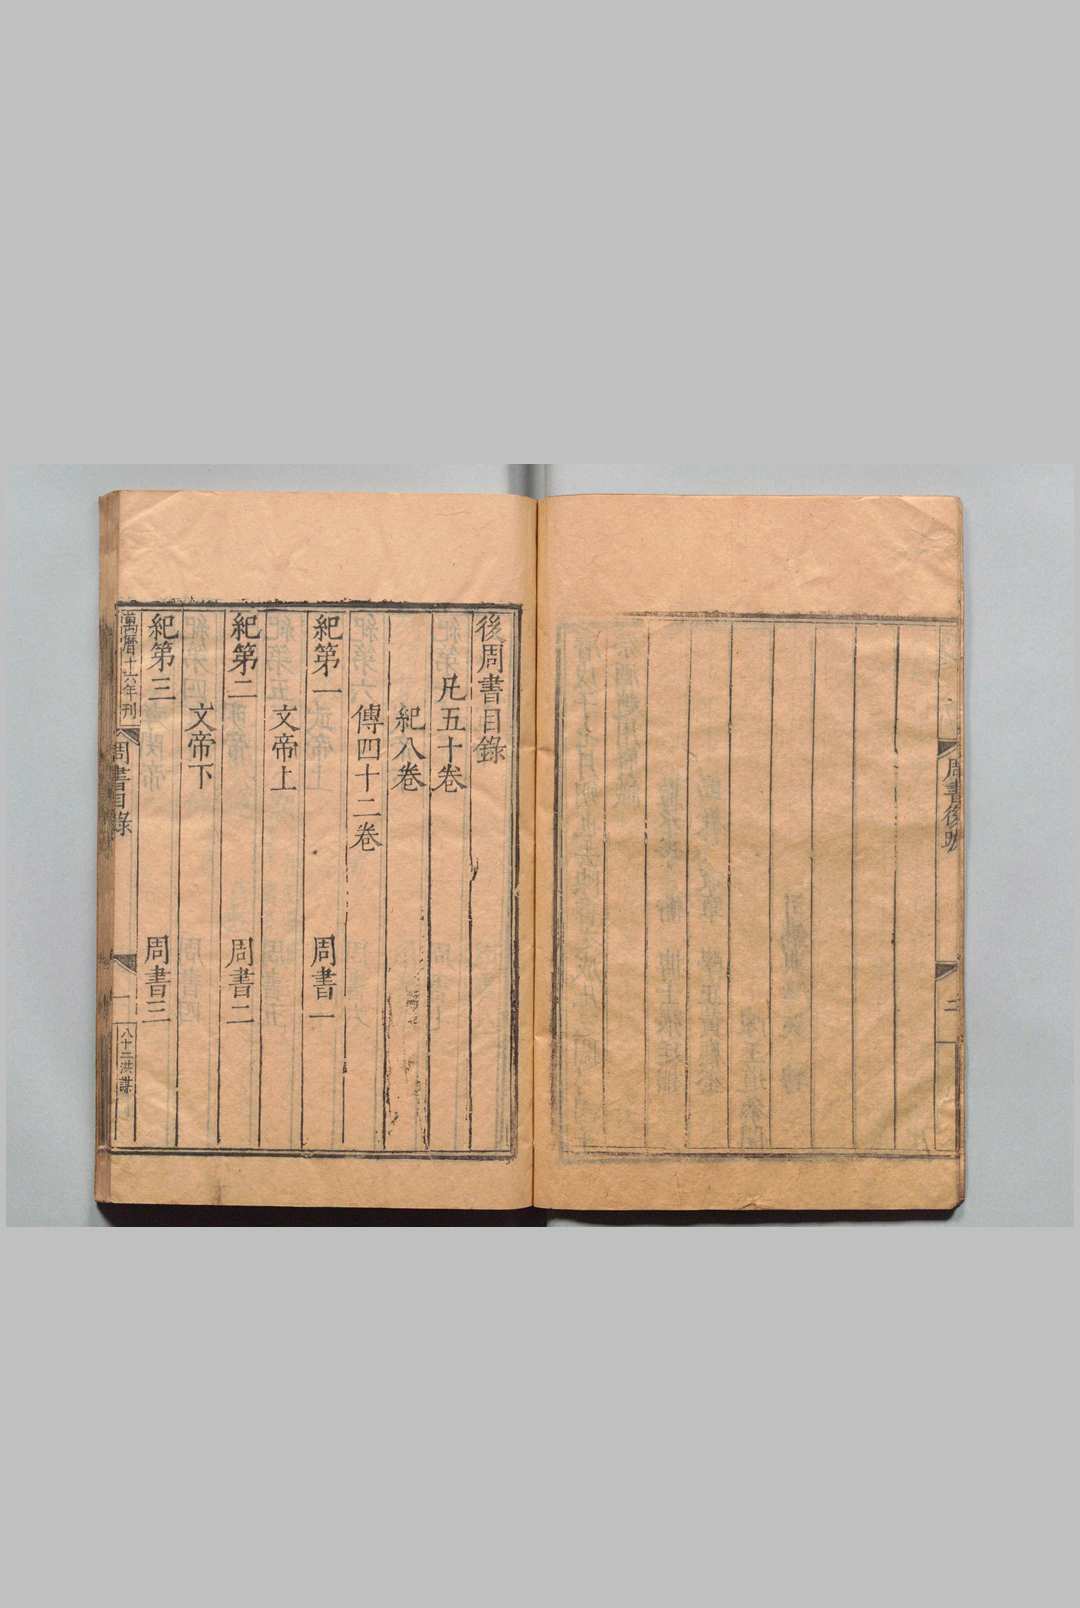 周書後跋
二
後周書目錄
凡五十卷
紀八卷
傳四十二卷
紀第一
周書一
文帝上
紀第二
周書二
文帝下
紀第三
周書三
萬曆十六年刊
周書目錄
一
八十二洪謀